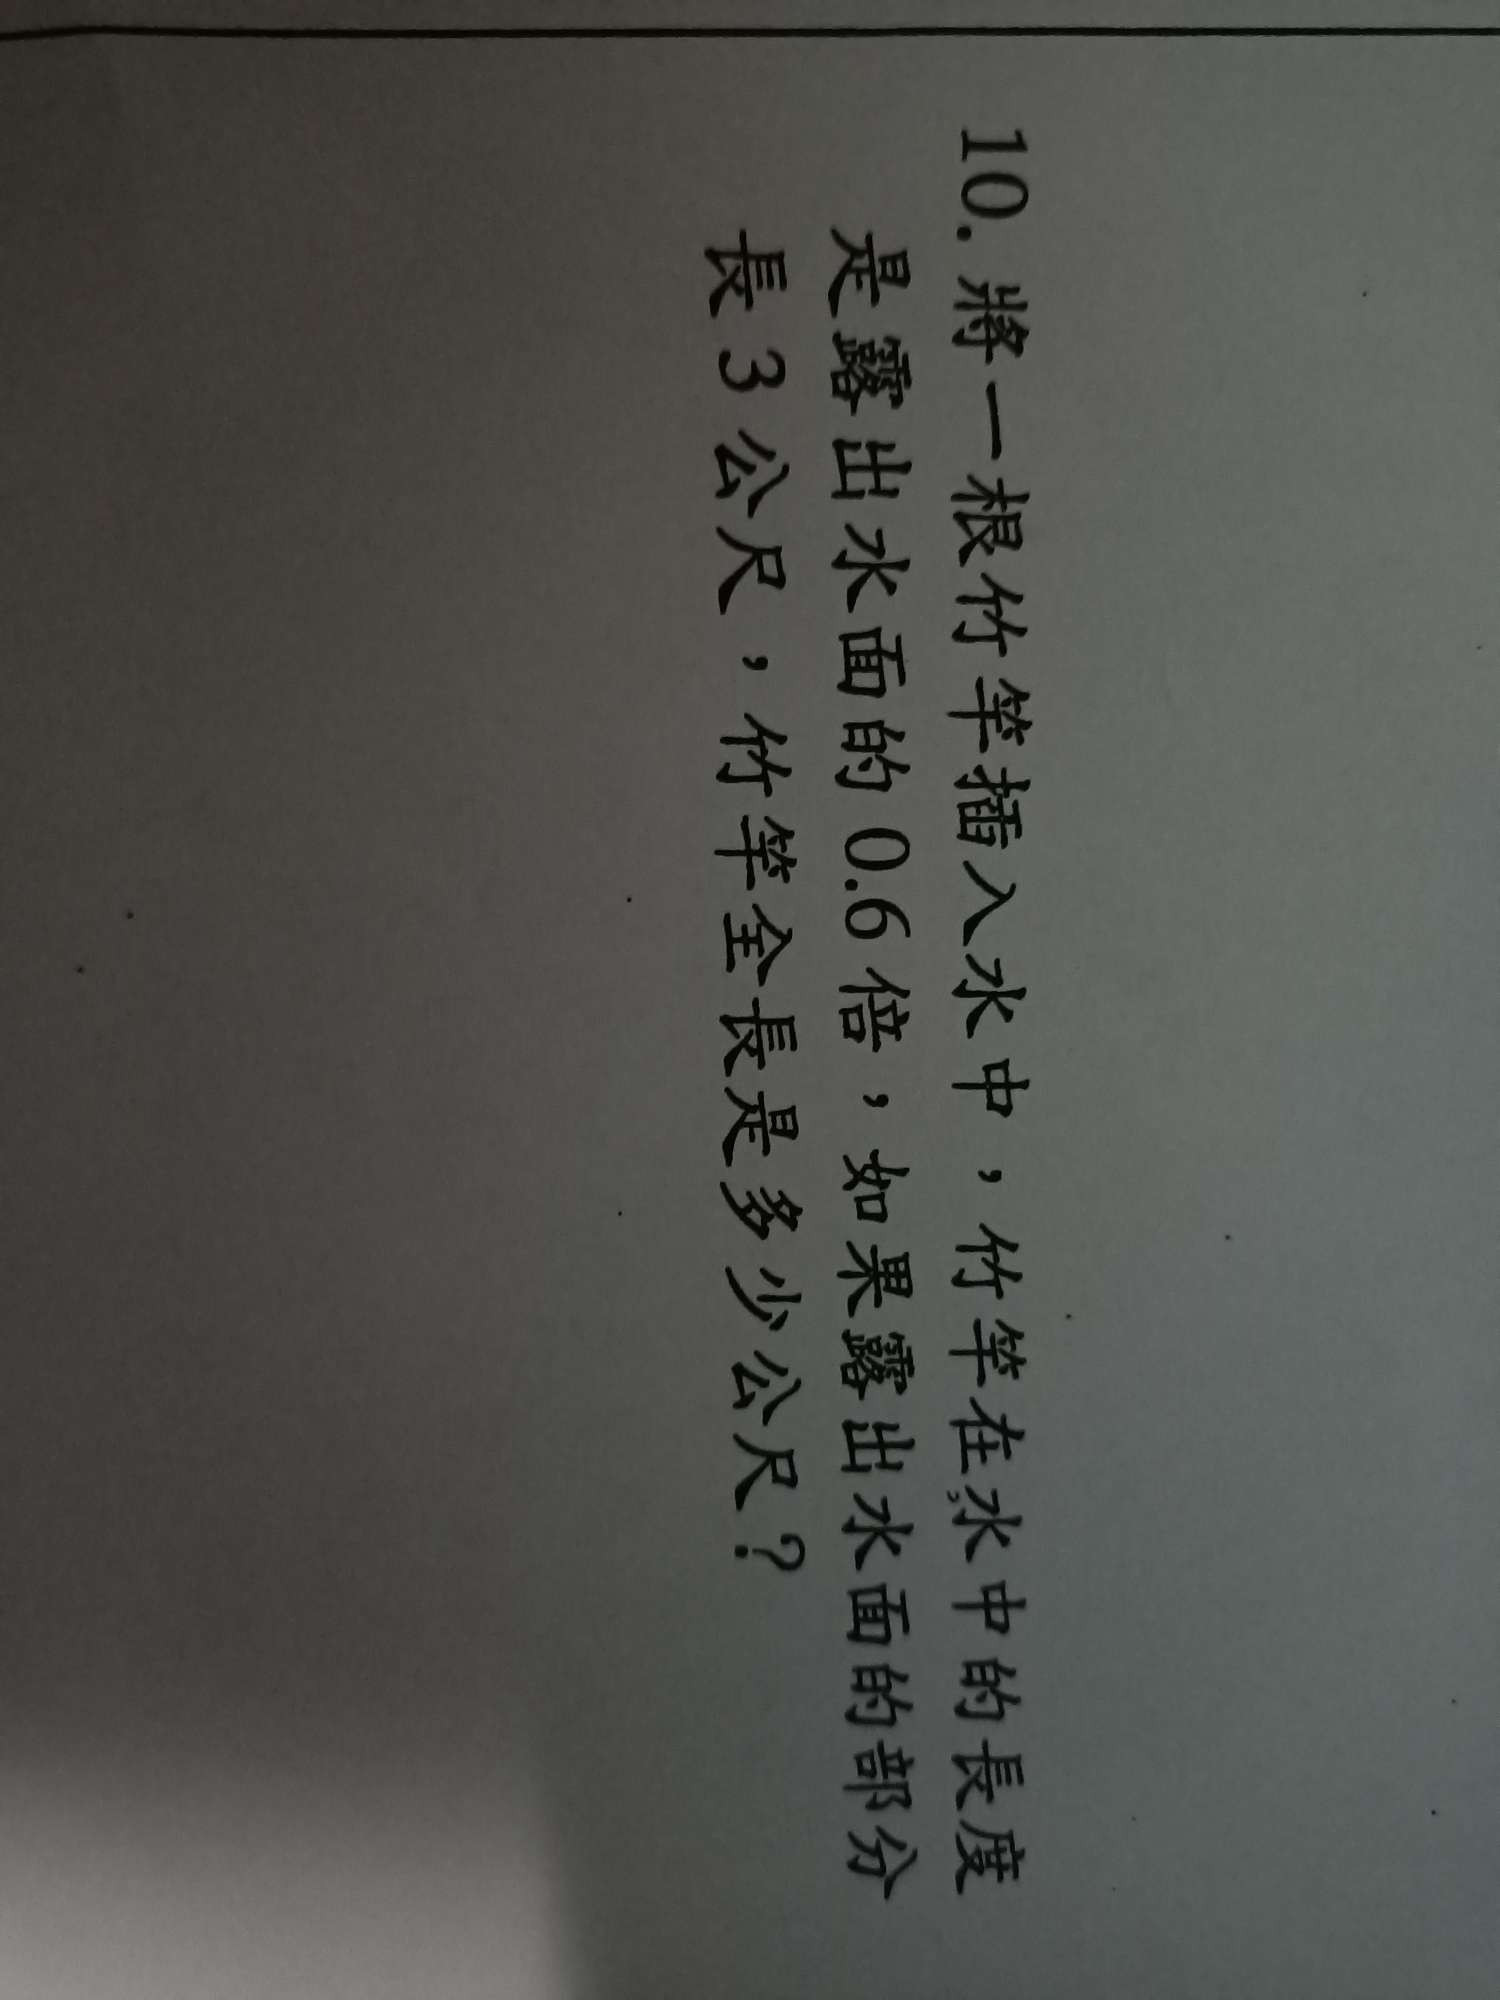 10. 將一根竹竿插入水中，竹竿在水中的長度
是露出水面的0.6倍，如果露出水面的部分
長3公尺，竹竿全長是多少公尺？